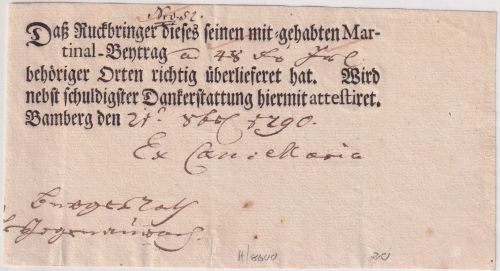 Nro. 52.
Daß Ruckbringer dieses seinen mit-gehabten Mar-
tinal-Beytrag a 48
behöriger Orten richtig überlieferet hat. Wird
nebst schuldigster Dankerstattung hiermit attestiret.
Bamberg den 21t 8bris 1790.
Ex Cancellaria
Herzogenaurach
H/8600
20